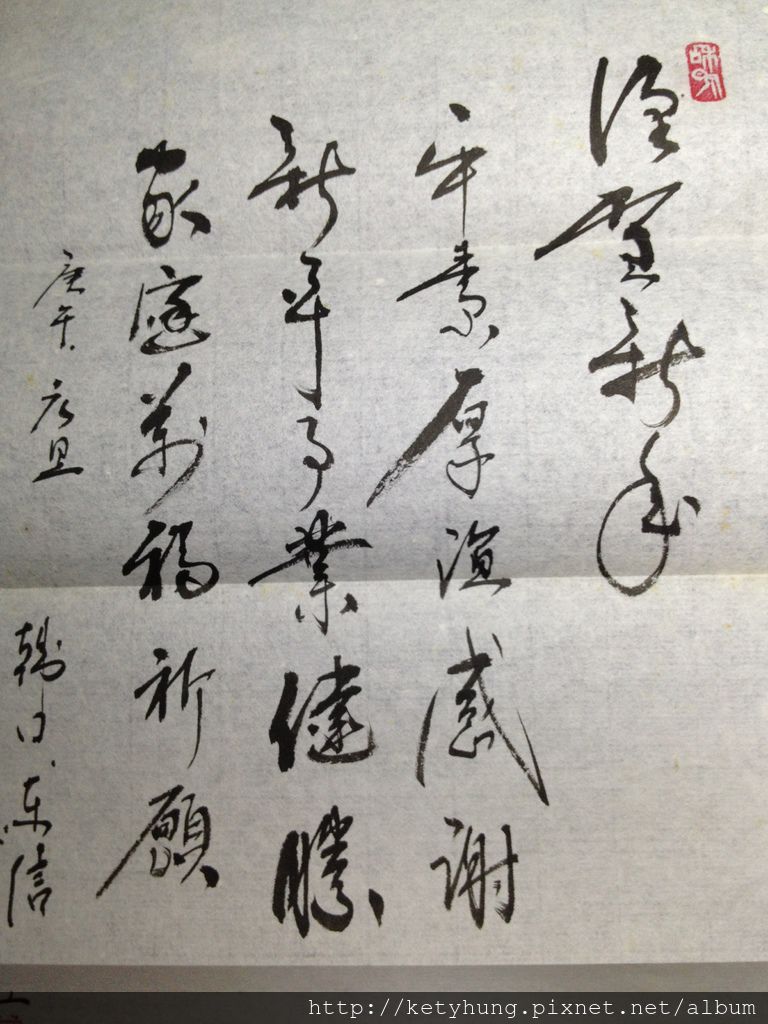 謹賀新年
平素厚誼感謝
新年事業健勝
家庭萬福祈願
庚午.元旦
韓日.東信
http://ketyhung.pixnet.net/album